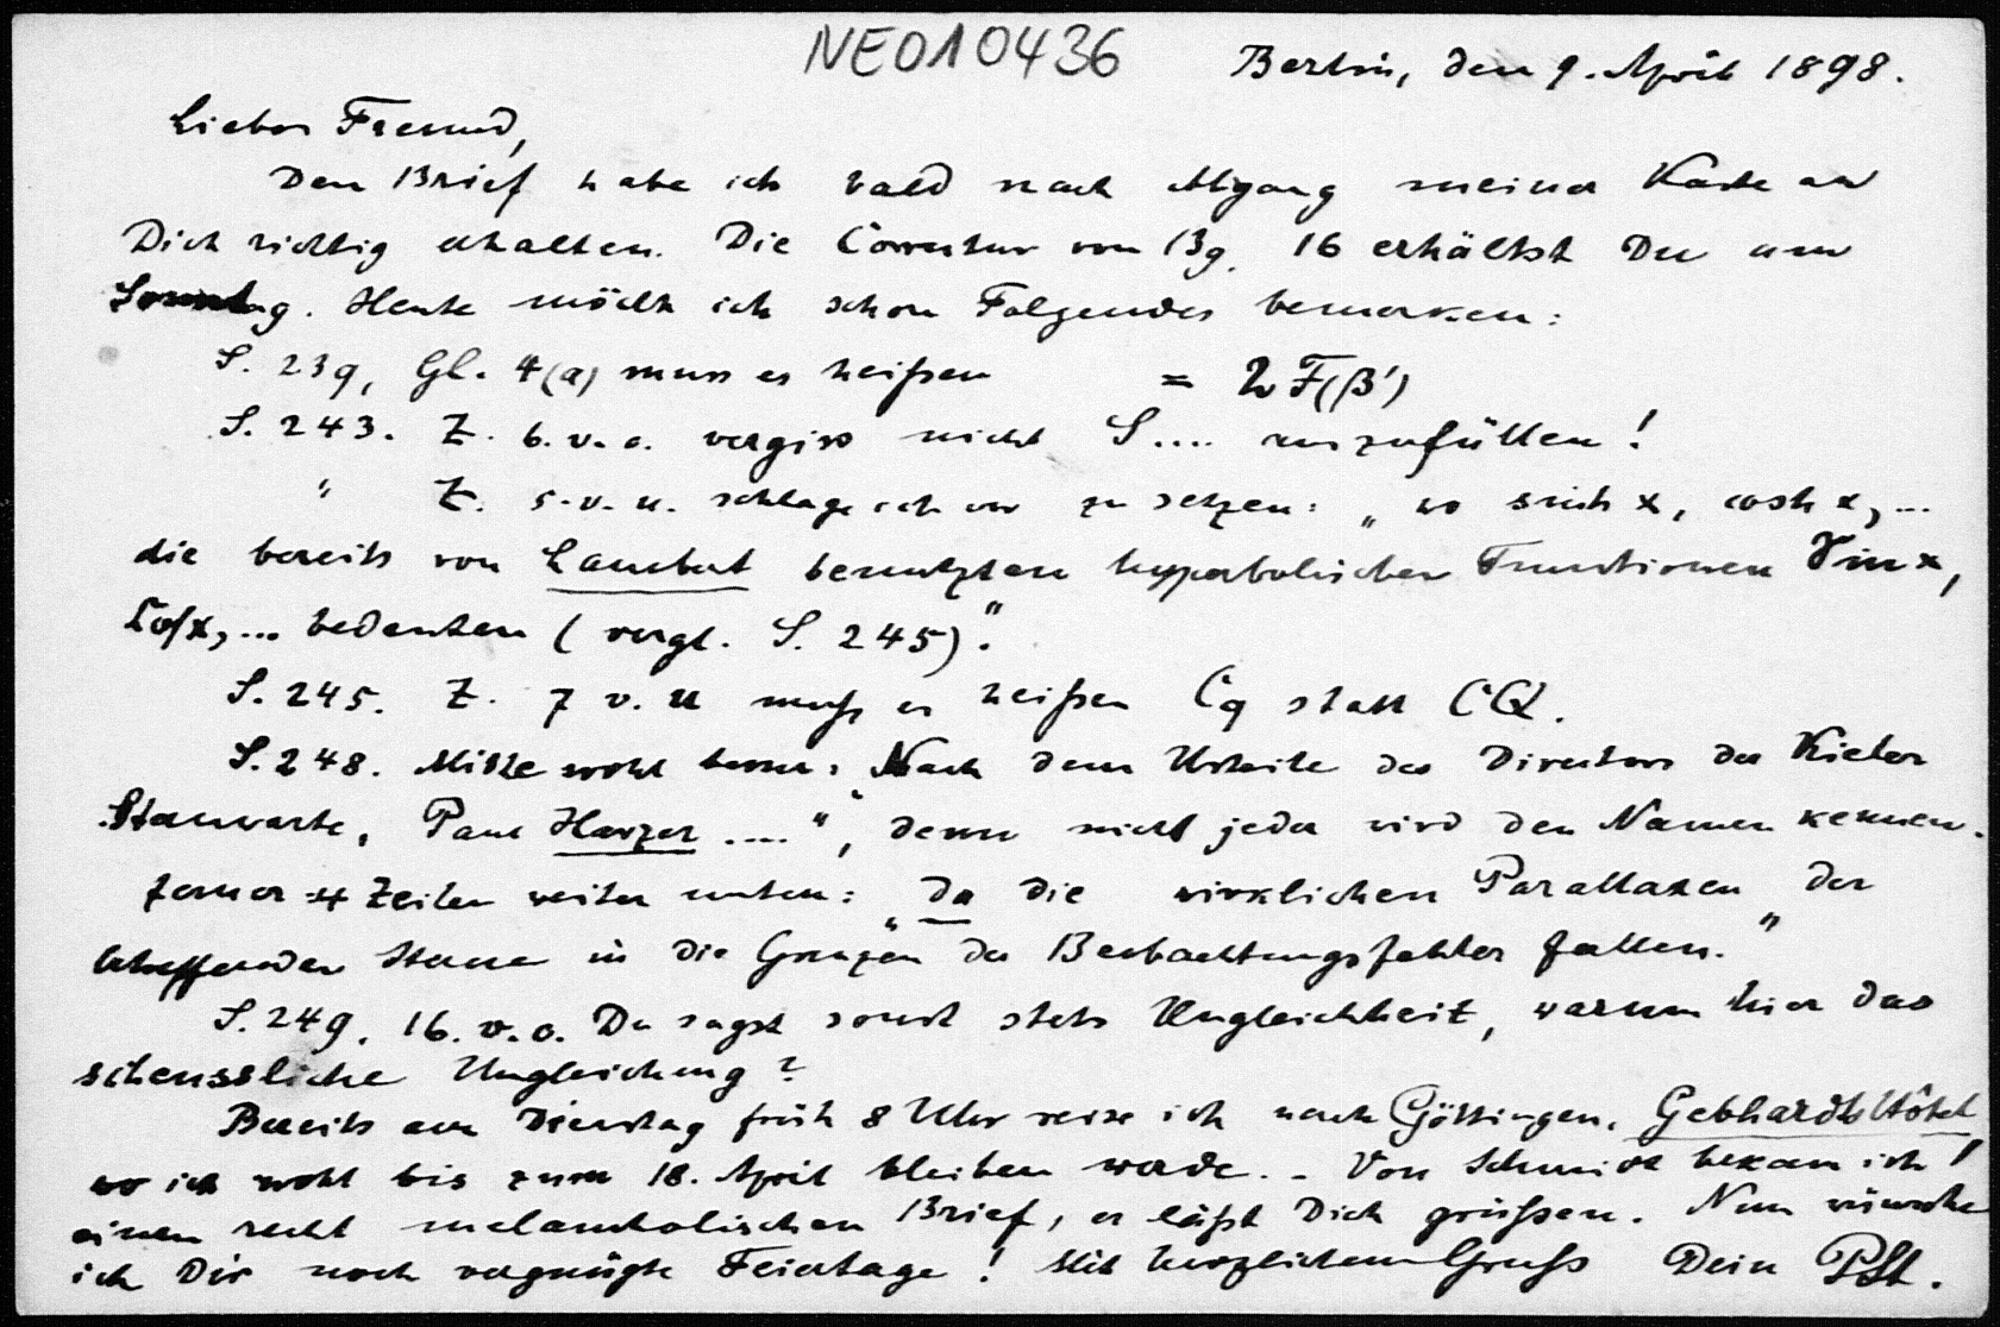 NE010436
Berlin, den 9. April 1898.
Lieber Freund,
Den Brief habe ich bald nach Abgang meiner Karte an
Dich richtig erhalten. Die Correctur von Bg. 16 erhältst Du am
Sonntag. Heute möcht ich schon Folgendes bemerken:
S. 239, Gl. 4(a) muss es heißen = 2 F(β')
S. 243. Z. 6. v. o. vergiss nicht S.... auszufüllen!
" Z. 5. v. u. schlage ich vor zu setzen: „wo sinh x, cosh x,...
die bereits von Lambert benutzten hyperbolischen Functionen Sin x,
Cos x,... bedeuten (vergl. S. 245)."
S. 245. Z. 7 v. u muß es heißen Cq statt CQ.
S. 248. Mitte wohl besser: „Nach dem Urteile des Directors der Kieler
Sternwarte, Paul Harzer ....", denn nicht jeder wird den Namen kennen.
Ferner 4 Zeilen weiter unten: „Da die wirklichen Parallaxen der
betreffenden Sterne in die Grenzen der Beobachtungsfehler fallen."
S. 249, 16. v. o. Du sagst sonst stets Ungleichheit, warum hier das
scheussliche Ungleichung?
Bereits am Dienstag früh 8 Uhr reise ich nach Göttingen, Gebhardts Hôtel
wo ich wohl bis zum 18. April bleiben werde. – Von Schmidt bekam ich
einen recht melancholischen Brief, er läßt Dich grüßen. Nun wünsche
ich Dir noch vergnügte Feiertage! Mit herzlichem Gruß Dein PSt.